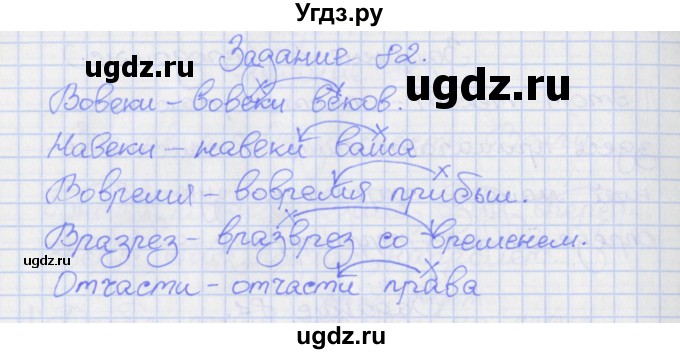 Угдз.ру
Задание 82.
ugdz.ru
Вовеки – вовеки веков.
Навеки – навеки ваша
Вовремя – вовремя прибыл.
Вразрез – вразврез со временем.
ugdz.ru
Отчасти – отчасти права
ugdz.ru
ugdz.ru